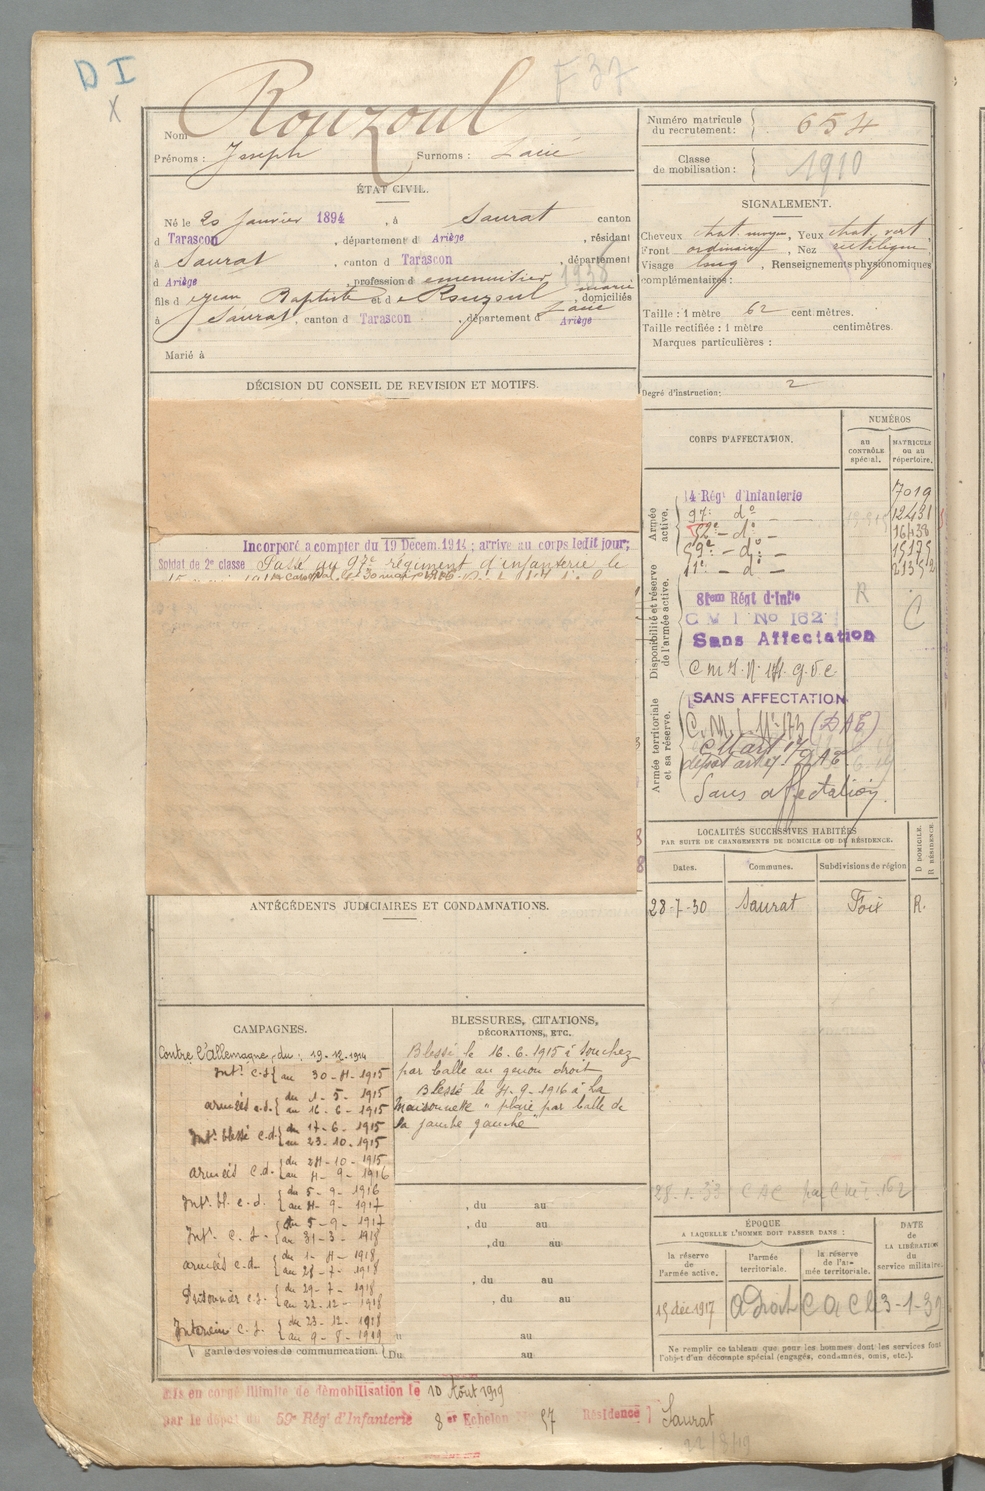 D I
X
F 37
Nom Rouzoul
Prénoms : Joseph Surnoms :
Numéro matricule du recrutement : 654
Classe de mobilisation : 1910
ÉTAT CIVIL.
Né le 20 Janvier 1894, à Saurat canton
d Tarascon, département d Ariège, résidant
à Saurat, canton d Tarascon, département
d Ariège, profession d menuisier 1938
fils d Jean Baptiste et d Rouzoul marie, domiciliés
à Saurat, canton d Tarascon, département d Ariège
Marié à
SIGNALEMENT.
Cheveux chat. moyen, Yeux chat. vert
Front ordinaire, Nez rectiligne
Visage long, Renseignements physionomiques
complémentaires :
Taille : 1 mètre 62 centimètres.
Taille rectifiée : 1 mètre centimètres.
Marques particulières :
Degré d'instruction : 2
DÉCISION DU CONSEIL DE REVISION ET MOTIFS.
Incorporé a compter du 19 Décem. 1914 ; arrivé au corps ledit jour;
Soldat de 2e classe Passé au 97e régiment d'infanterie le
CORPS D'AFFECTATION.
NUMÉROS
au CONTRÔLE spécial.
MATRICULE ou au répertoire.
Armée active.
14 Régt d'Infanterie 7019
97e do 12431
52e - do - 16438
59e - do - 15175
11e - do -
Disponibilité et réserve de l'armée active.
81em Régt d'Infie R C
C M I No 162
Sans Affectation
Armée territoriale et sa réserve.
SANS AFFECTATION
C. M. I. No 173 (D A E)
Sans affectation
LOCALITÉS SUCCESSIVES HABITÉES
PAR SUITE DE CHANGEMENTS DE DOMICILE OU DE RÉSIDENCE.
Dates. Communes. Subdivisions de région
D DOMICILE.
R RÉSIDENCE.
28-7-30 Saurat Foix R.
28.1.33 C A C par C M I. 162
ANTÉCÉDENTS JUDICIAIRES ET CONDAMNATIONS.
CAMPAGNES.
Contre l'Allemagne, du : 19-12-1914
Intr c.s { au 30-4-1915
armées c.d. { du 1-5-1915
au 16-6-1915
Intr blessé c.d. { du 17-6-1915
au 23-10-1915
armées c.d. { du 24-10-1915
au 4-9-1916
Intr bl. c.d. { du 5-9-1916
au 4-9-1917
Intr c.s. { du 5-9-1917
au 31-3-1918
armées c.d. { du 1-4-1918
au 28-7-1918
Prisonnier c.s. { du 29-7-1918
au 22-12-1918
Intérieur c.s. { du 23-12-1918
au 9-8-1919
garde des voies de communication. { Du au
BLESSURES, CITATIONS,
DÉCORATIONS, ETC.
Blessé le 16.6.1915 à Souchez
par balle au genou droit
Blessé le 4-9-1916 à La
Maisonnette "plaie par balle de
la jambe gauche"
, du au
, du au
, du au
, du au
, du au
au
ÉPOQUE
A LAQUELLE L'HOMME DOIT PASSER DANS :
la réserve de l'armée active.
l'armée territoriale.
la réserve de l'armée territoriale.
DATE de LA LIBÉRATION du service militaire.
15 déc 1917 a Droit C a C le 3-1-39
Ne remplir ce tableau que pour les hommes dont les services font
l'objet d'un décompte spécial (engagés, condamnés, omis, etc.).
Mis en congé illimité de démobilisation le 10 Août 1919
par le dépôt du 59e Rég d'Infanterie 8e Echelon N 57 Résidence Saurat